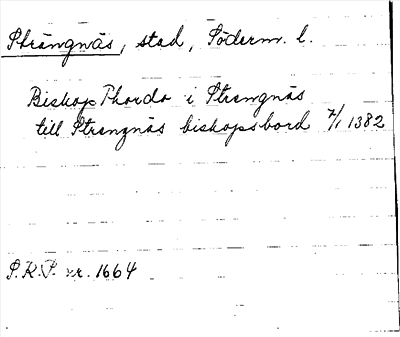 Strängnäs, stad, Söderm. l.
Biskop Thordo i Strengnäs
till Strengnäs biskopsbord 7/1 1382
S.R.P. nr. 1664